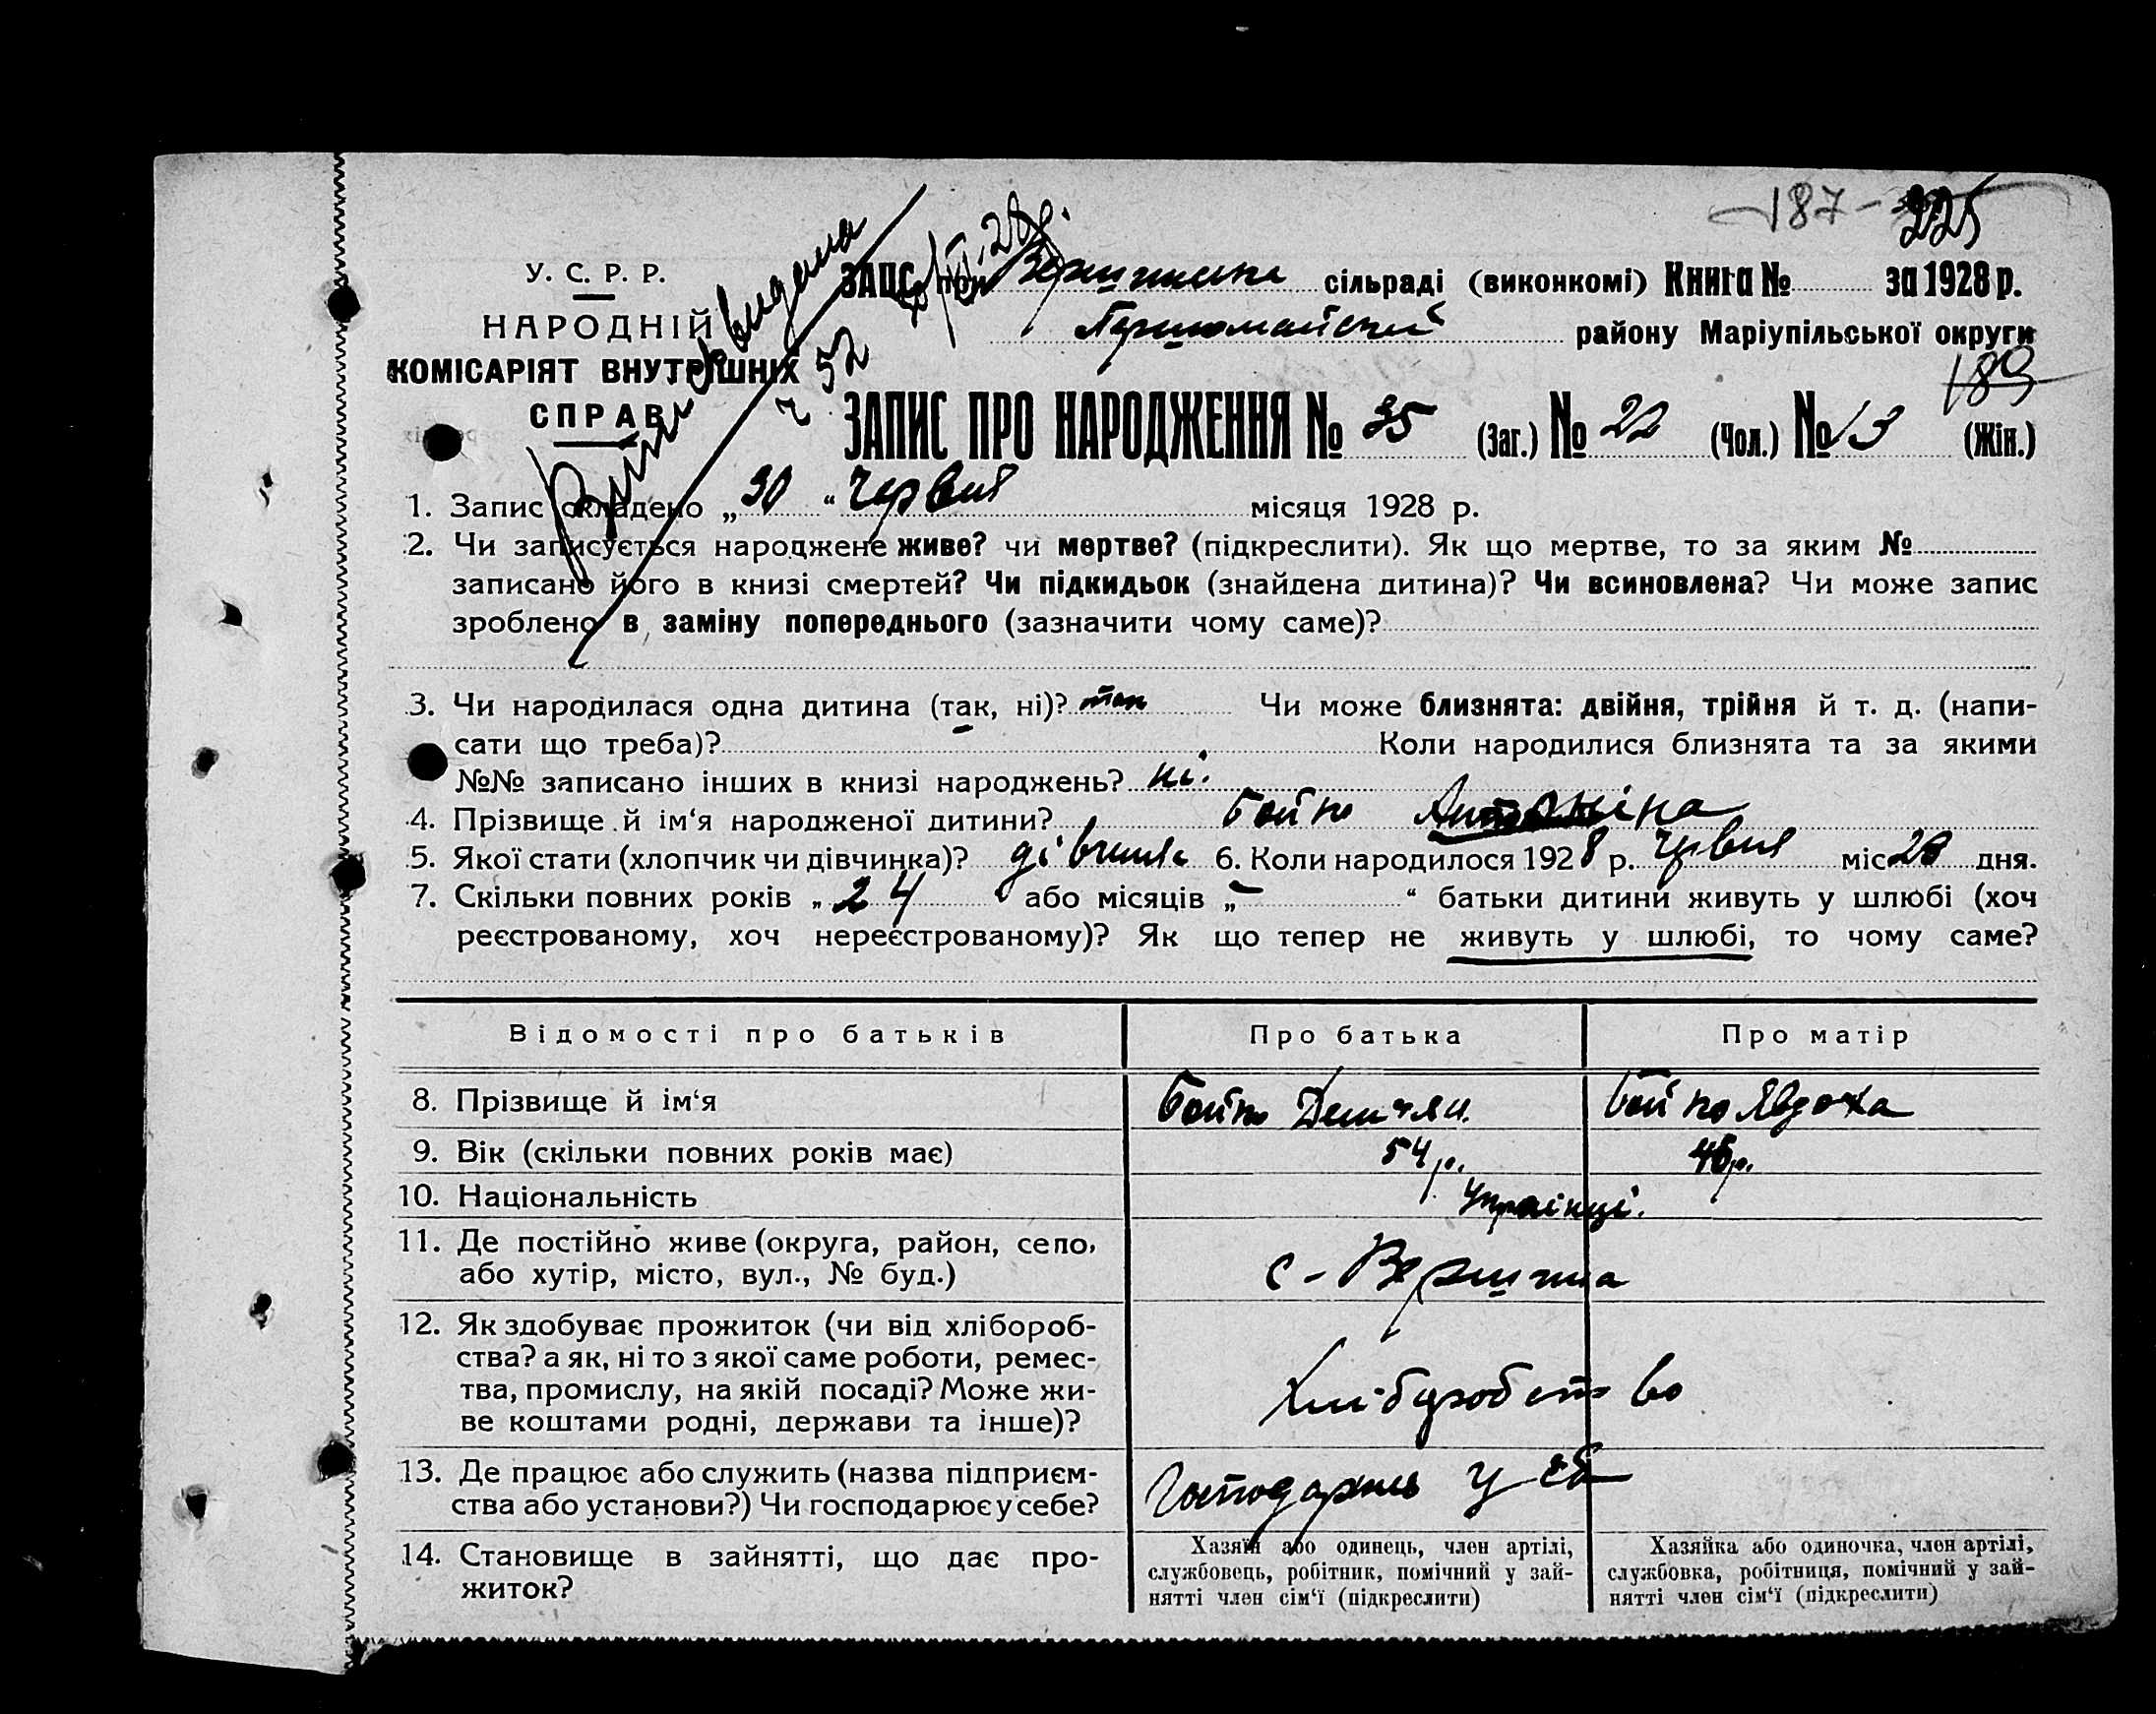 187 - 225
У. С. Р. Р.
НАРОДНІЙ
КОМІСАРІЯТ ВНУТРІШНІХ
СПРАВ
Виписъ видана
ч 52
ЗАПС при сільраді (виконкомі) Книга № за 1928 р.
Першомайский району Маріупільської округи
189
ЗАПИС ПРО НАРОДЖЕННЯ № 35 (Заг.) № 22 (Чол.) № 13 (Жін.)
1. Запис складено „30“ червня місяця 1928 р.
2. Чи записується народжене живе? чи мертве? (підкреслити). Як що мертве, то за яким №
записано його в книзі смертей? Чи підкидьок (знайдена дитина)? Чи всиновлена? Чи може запис
зроблено в заміну попереднього (зазначити чому саме)?
3. Чи народилася одна дитина (так, ні)? так Чи може близнята: двійня, трійня й т. д. (напи-
сати що треба)? Коли народилися близнята та за якими
№№ записано інших в книзі народжень? ні.
4. Прізвище й ім‘я народженої дитини? Бойко Антоніна
5. Якої стати (хлопчик чи дівчинка)? дівчина 6. Коли народилося 1928 р. червня міс. 28 дня.
7. Скільки повних років „24 або місяців „-“ батьки дитини живуть у шлюбі (хоч
реєстрованому, хоч нереєстрованому)? Як що тепер не живуть у шлюбі, то чому саме?
Відомості про батьків Про батька Про матір
8. Прізвище й ім‘я Бойко Демчян. Бойко Явдоха
9. Вік (скільки повних років має) 54 р. 46 р.
10. Національність Українці.
11. Де постійно живе (округа, район, село,
або хутір, місто, вул., № буд.) с - Вершина
12. Як здобуває прожиток (чи від хлібороб-
ства? а як, ні то з якої саме роботи, ремес-
тва, промислу, на якій посаді? Може жи-
ве коштами родні, держави та інше)? Хлібуробство
13. Де працює або служить (назва підприєм-
ства або установи?) Чи господарює у себе? Господарюь у себ
14. Становище в зайнятті, що дає про-
житок?
Хазяїн або одинець, член артілі,
службовець, робітник, помічний у зай-
нятті член сім‘ї (підкреслити)
Хазяйка або одиночка, член артілі,
службовка, робітниця, помічний у зай-
нятті член сім‘ї (підкреслити)